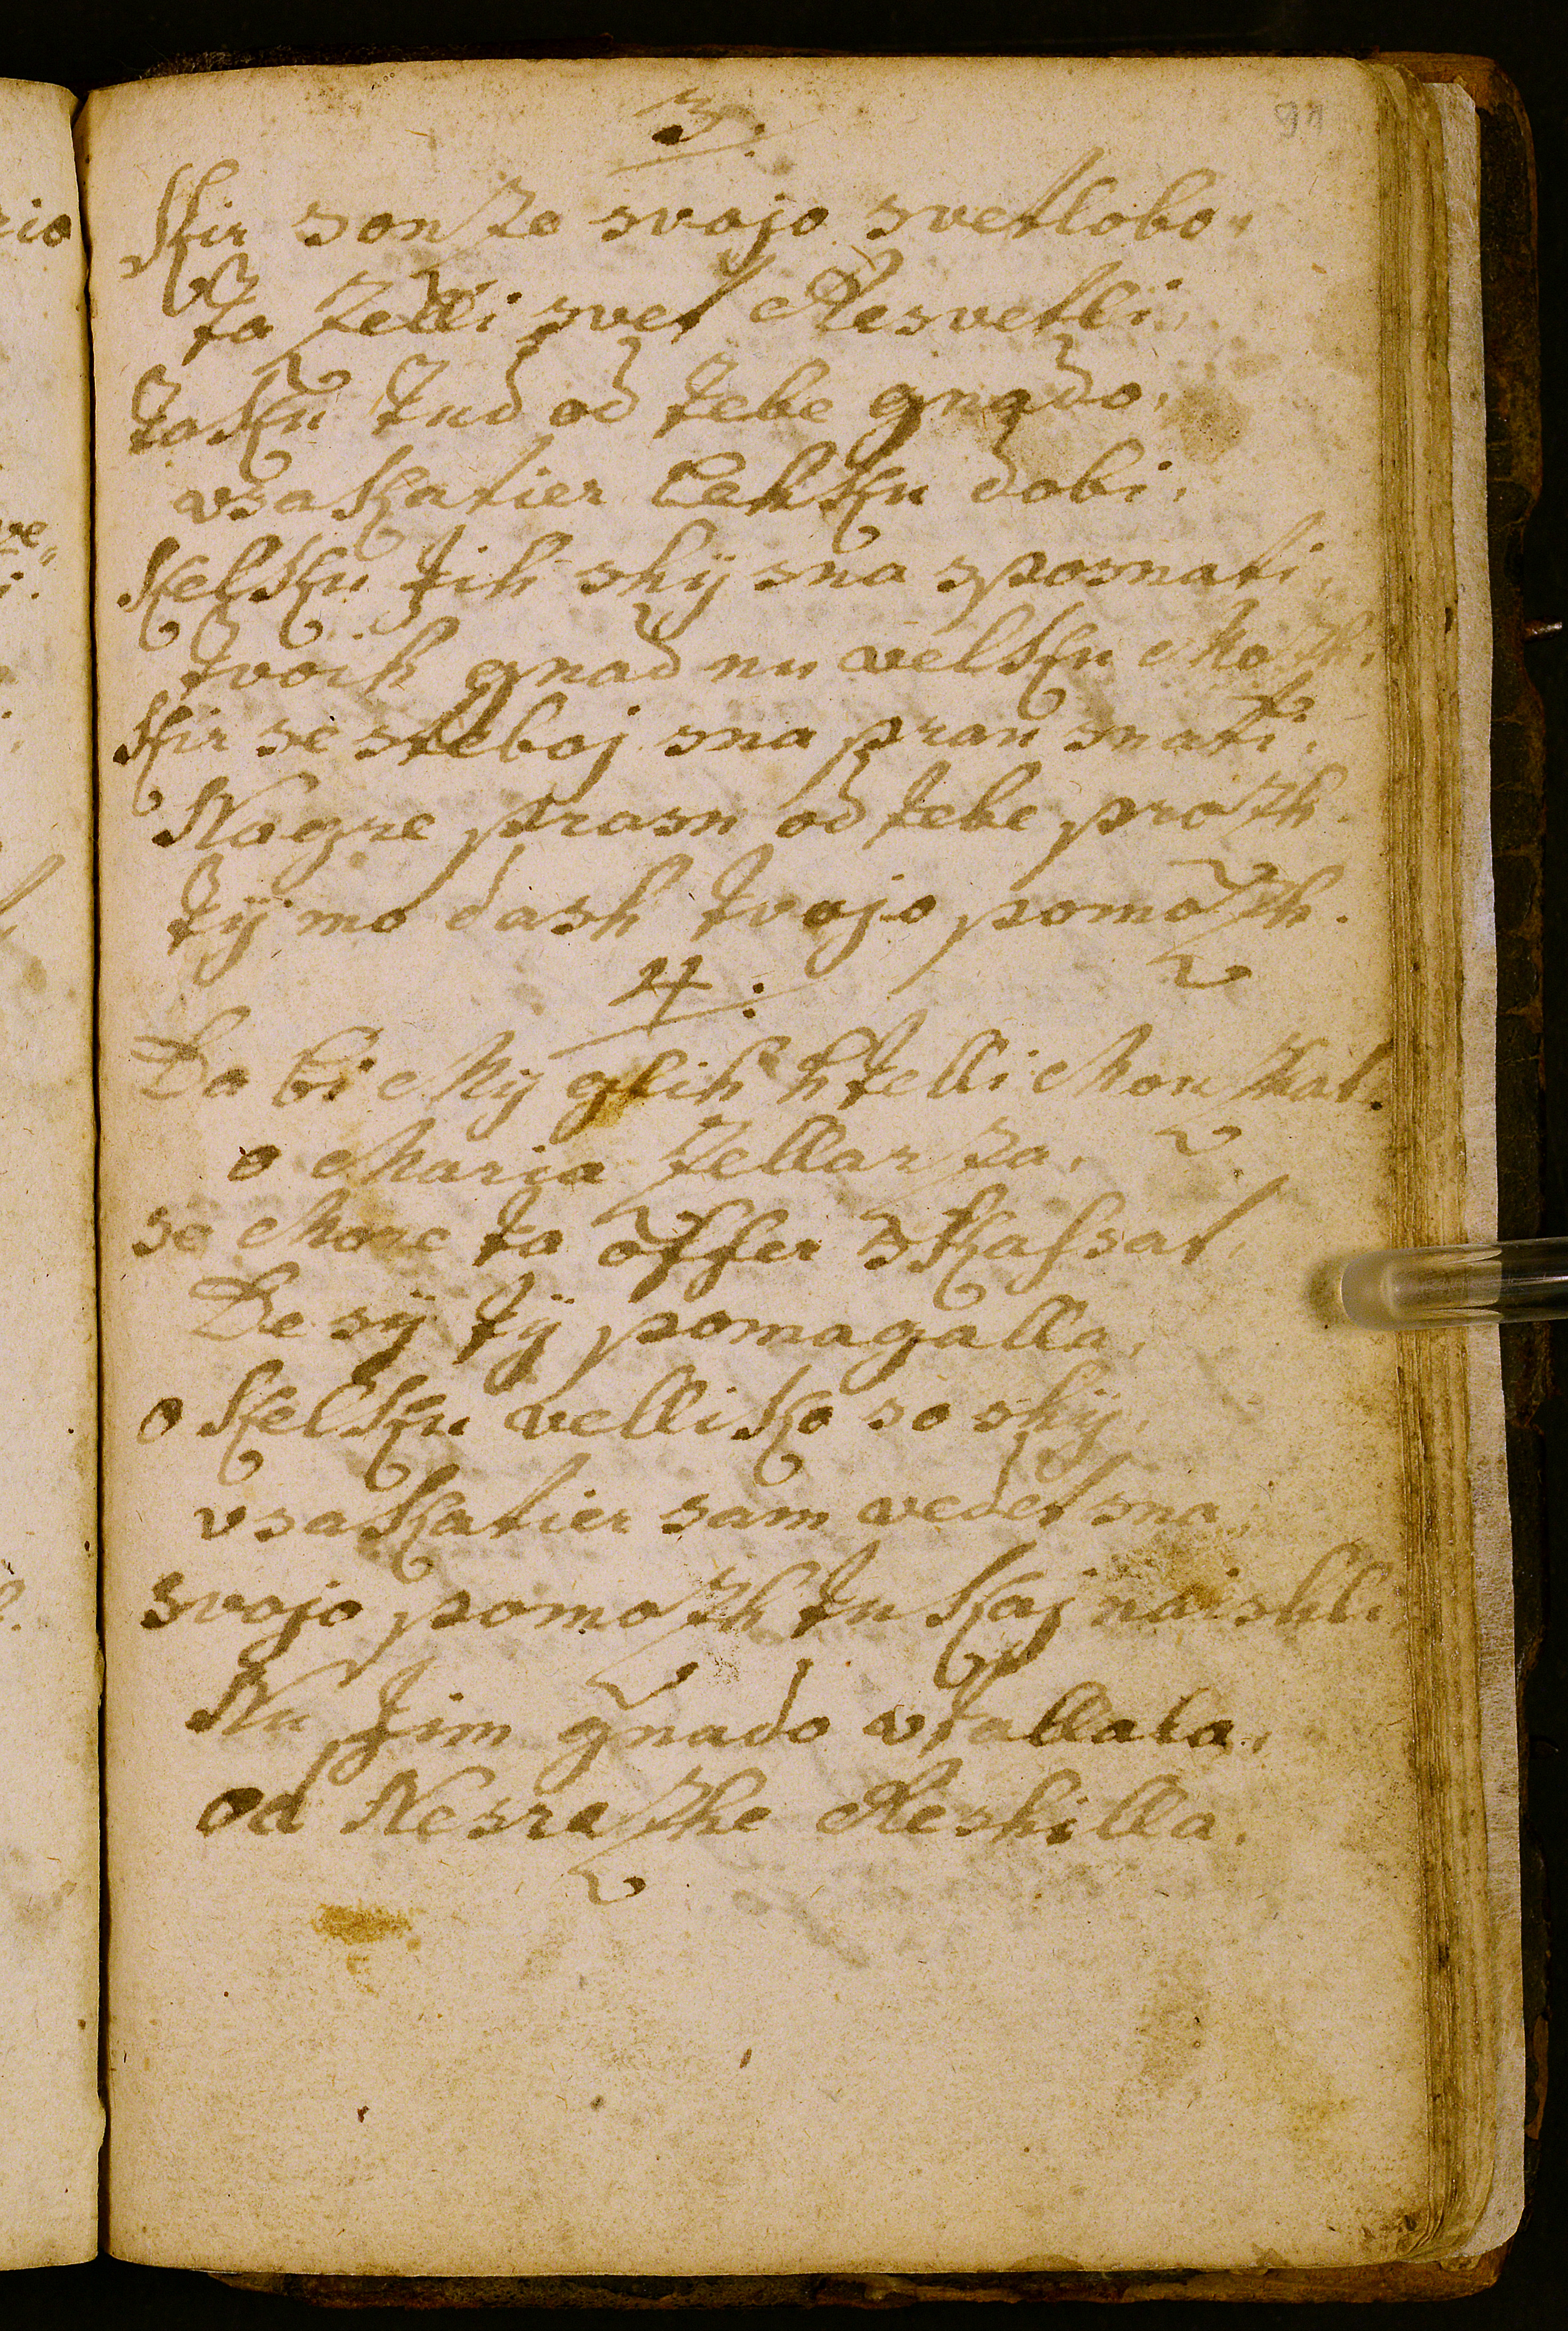 91
3.
Kir sonze svojo svetlobo
ta zelli svet Resvetli,
taku tud od tebe gnado,
vsakatier Lehku dobi,
Kelku tih shÿ sna sposnati,
tvoih gnad nu velku Mozh,
Kir se steboj sna prau snati,
Nagre prasn od tebe prozh.
tÿ mo dash tvojo pomozh.
4.
Da bi Mÿ glih htelli Mouzhat,
o Maria zellarza,
se More ta offer skassat,
De sÿ tÿ pomagalla,
o Kelku velliko so shÿ,
vsakatier sam vedet sna,
svojo pomozh tu kaj naishli,
Nu tim gnado vtallala,
od Nesrezhe Reshilla.